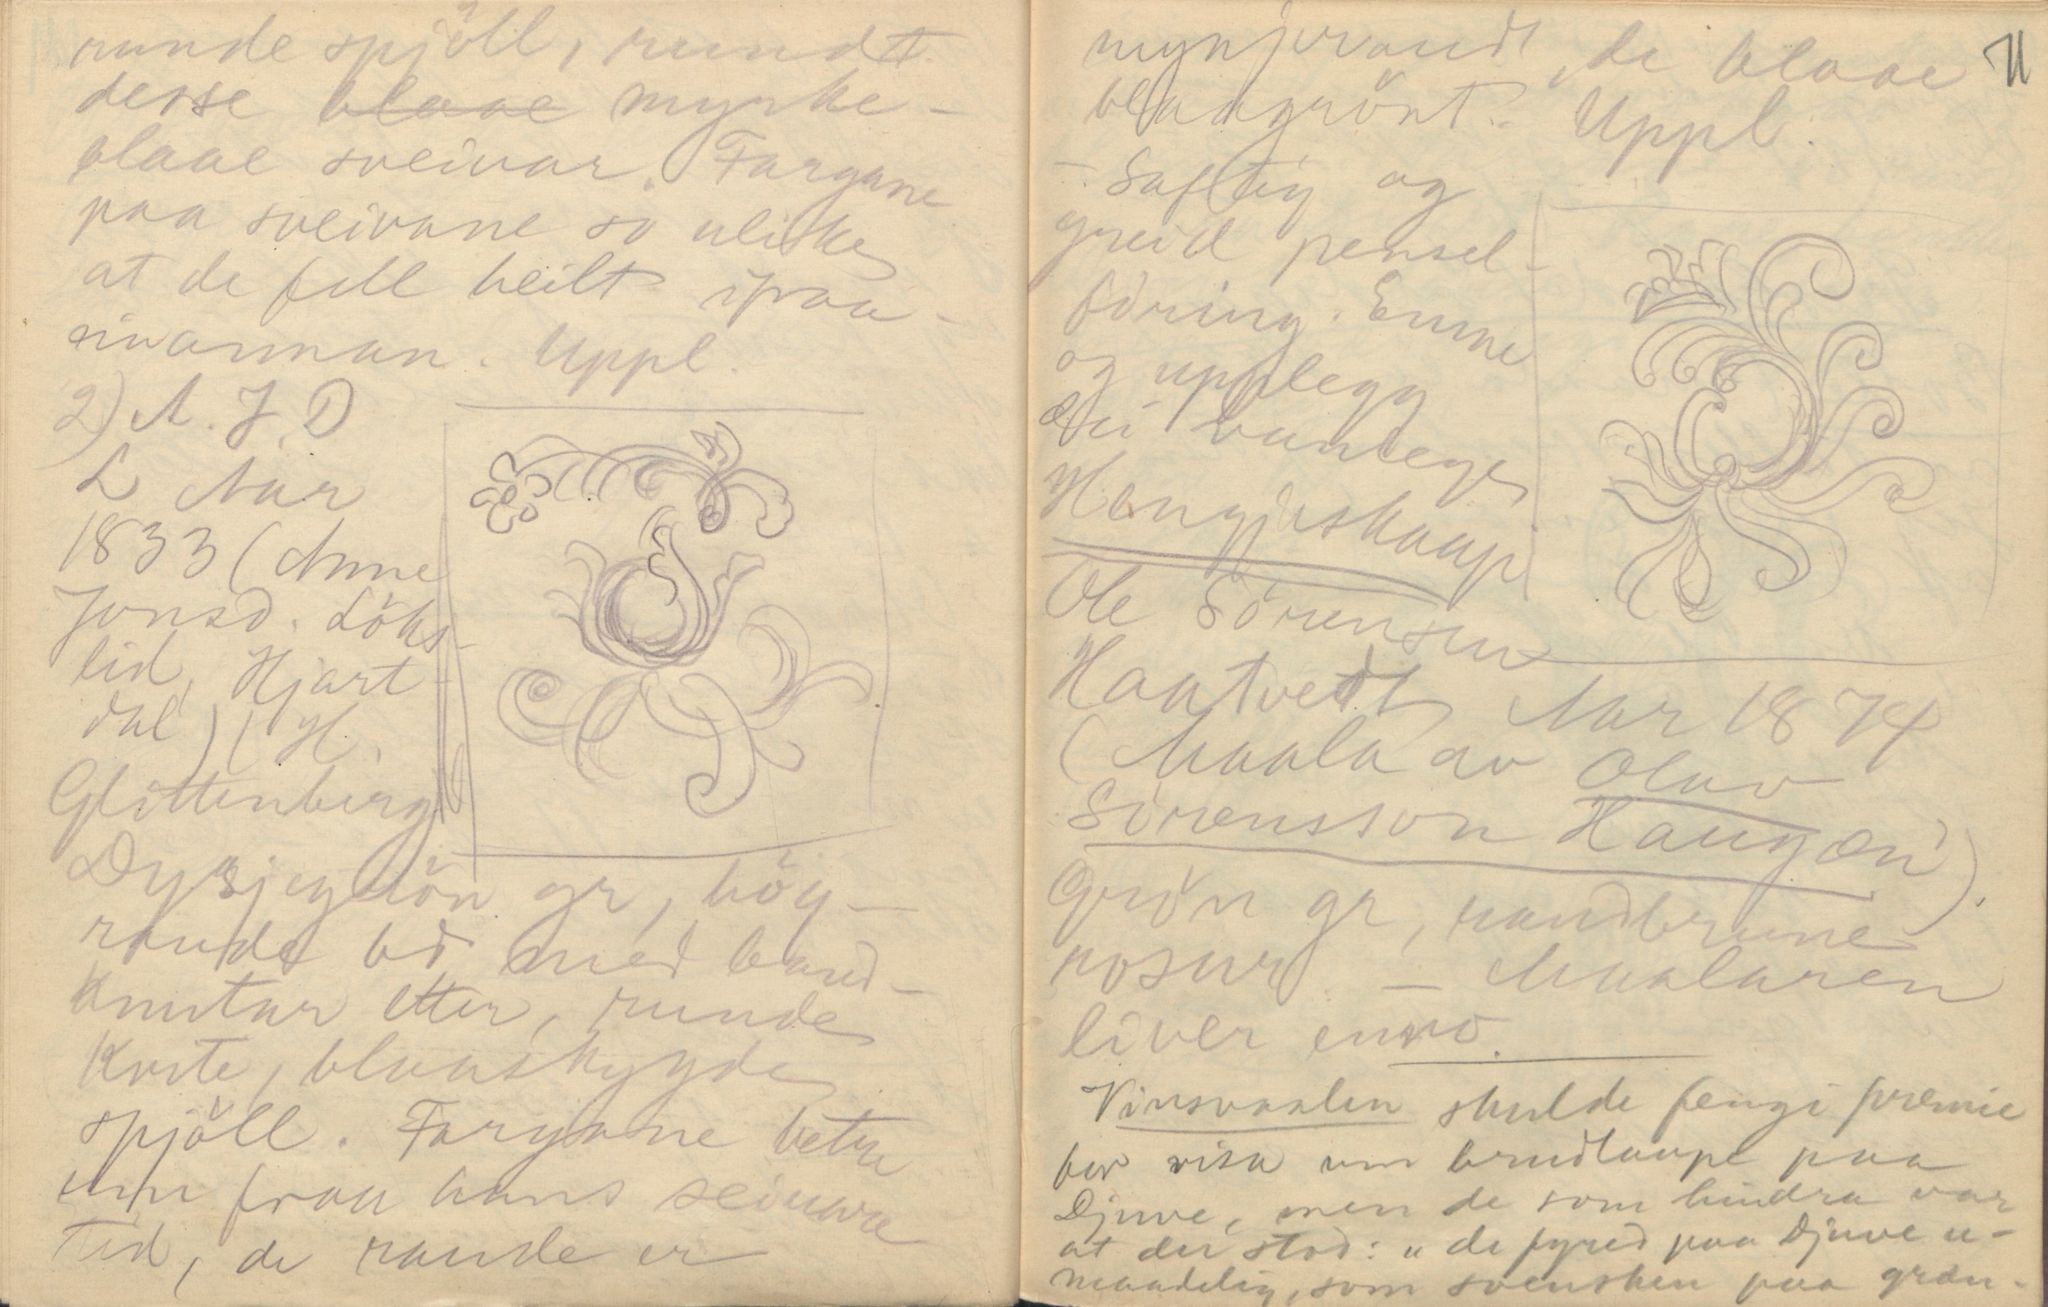 runde spjöll, rundt
desse blaae myrke-
blaae sveivar. Fargane
paa sveivane so ulike
at de fell heilt ifraa-
einannan. Uppl.
2) A. J. D
L Aar
1833 (Anne
Jonsd. Löks-
lid, Hjart-
dal) (H.
Glittenberg
Dysjegrön gr, hög-
raude bd med band-
knutar etter, runde
kvite, blaaskygde
spjöll. Fargane betre
enn fraa hans seinare
tid, de raude er
mynjeraudt, de blaae
blaagrönt. Uppl.
11
- Saftig og
greid pensel-
föring. Emne
og upplegg
dei vanlege
Hengjeskaap
Ole Sörensen
Haatvedt Aar 1874
(Maala av Olav
Sörensson Haugen).
Grön gr, raudbrune
rosur. - Maalaren
liver enno.
Vinsvaalen skulde fengi premie
for visa um brudlaupe paa
Djuve, men de som hindra var
at der stod: "de fyred paa Djuve u-
maadelig, som svensken paa græn-